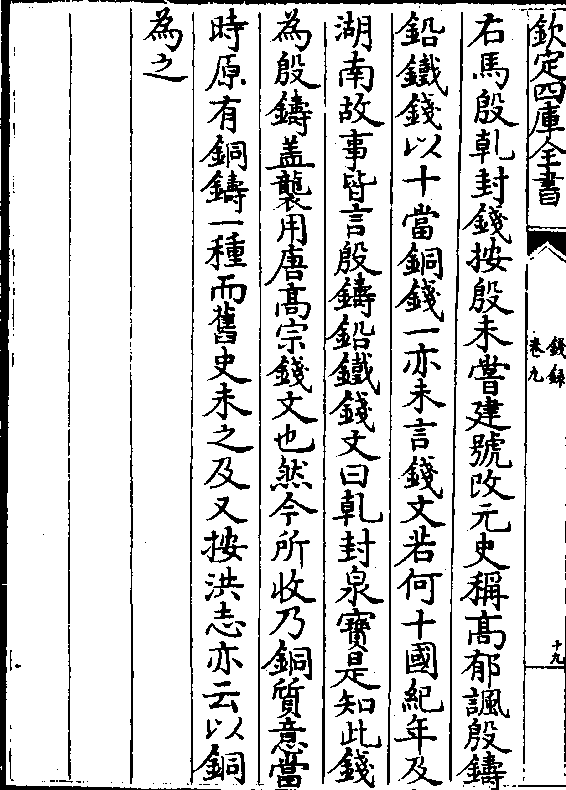 欽定四庫全書
錢錄
卷九
十九
右馬殷乹封錢按殷未嘗建號改元史稱髙郁諷殷鑄
鉛鐵錢以十當銅錢一亦未言錢文若何十國紀年及
湖南故事皆言殷鑄鉛鐵錢文曰乹封泉寳是知此錢
為殷鑄盖襲用唐髙宗錢文也然今所收乃銅質意當
時原有銅鑄一種而舊史未之及又按洪志亦云以銅
為之